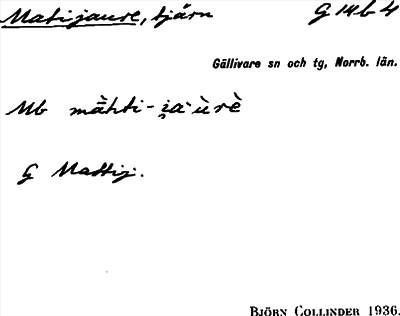 Matijaure, tjärn G 14 b 4
Gällivare sn och tg, Norrb. län.
Mb màhti-i̯a·ùrè
G Mattij.
BJÖRN COLLINDER 1936.